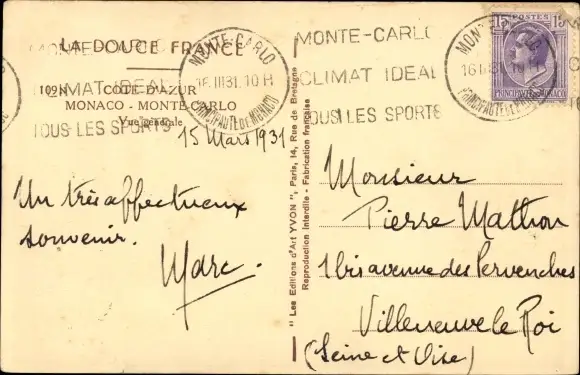 LA DOUCE FRANCE
109N CÔTE D'AZUR
MONACO - MONTE-CARLO
Vue générale
MONTE-CARLO
CLIMAT IDEAL
TOUS LES SPORTS
MONTE-CARLO
16 III 31. 10 H
PRINCIPAUTÉ DE MONACO
15 Mars 1931
Un très affectueux
souvenir.
Marc.
"Les Editions d'Art YVON", Paris, 14, Rue de Bretagne
Reproduction Interdite - Fabrication française
MONTE-CARLO
CLIMAT IDEAL
TOUS LES SPORTS
MONTE-CARLO
16 III 31
PRINCIPAUTÉ DE MONACO
15 POSTES 15
PRINCIPAUTÉ DE MONACO
Monsieur
Pierre Mathon
1 bis avenue des Pervenches
Villeneuve le Roi
(Seine et Oise)